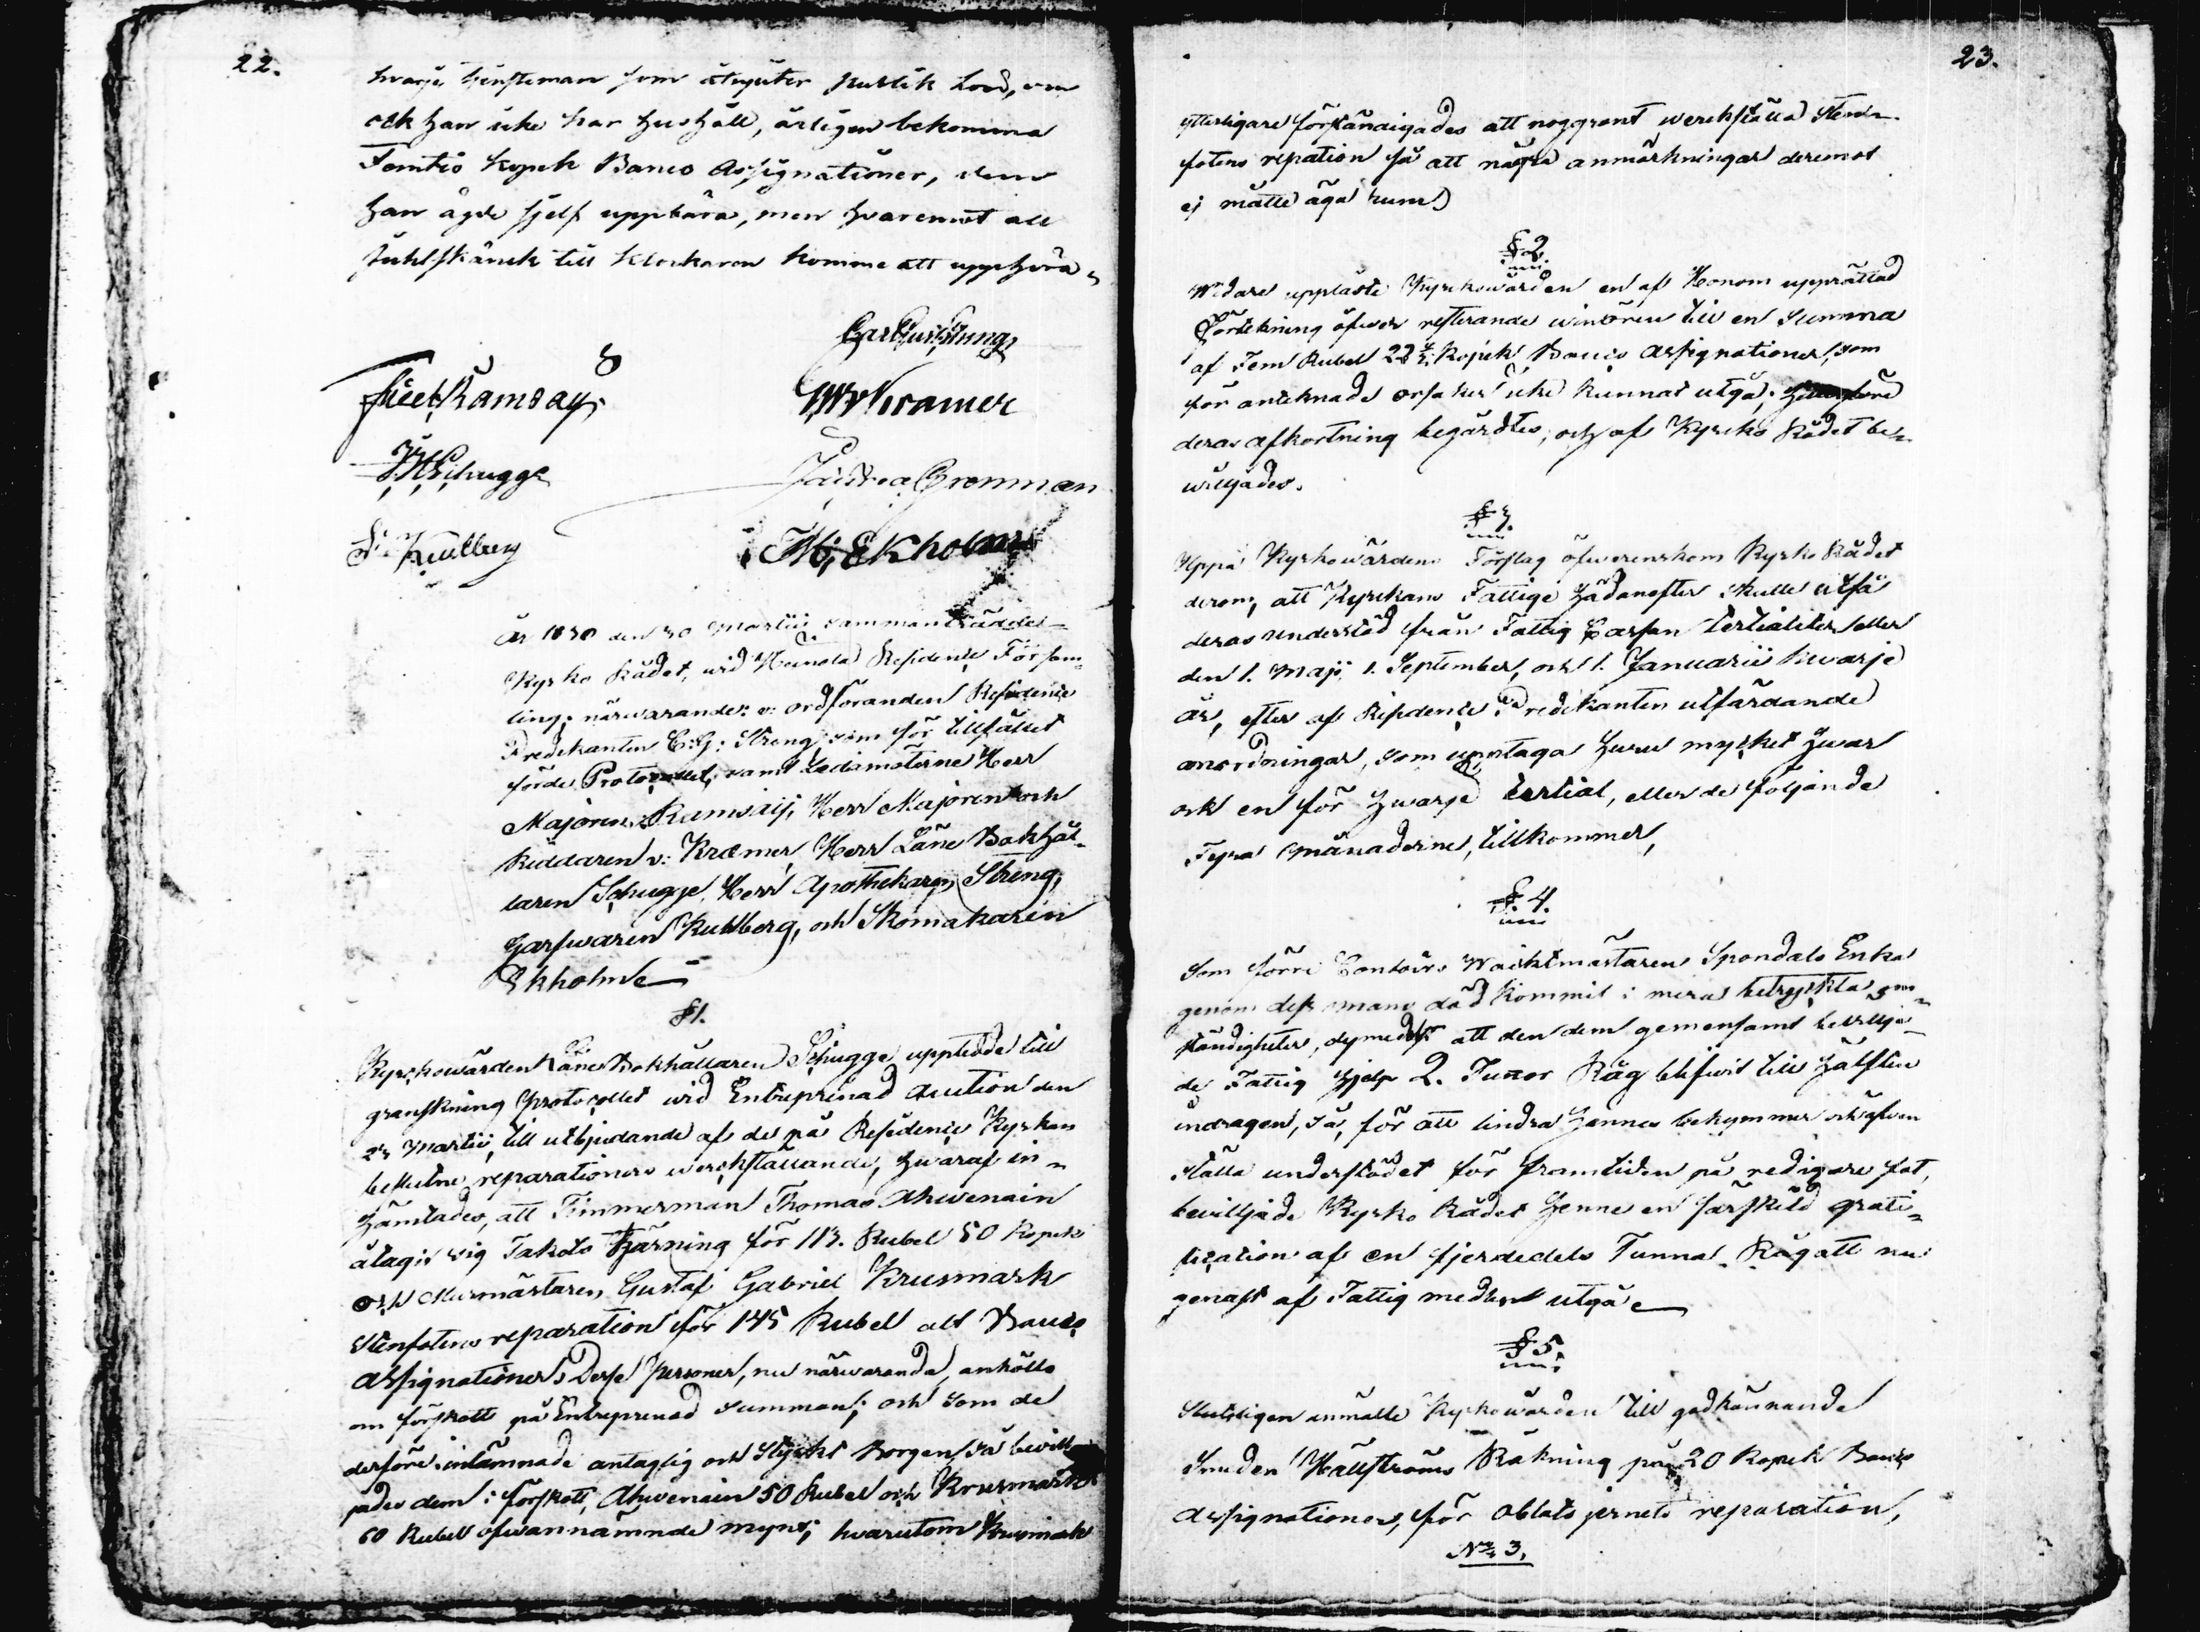 22.
hvarje tjensteman som åtnjuter publik Lön, om
ock han icke har hushåll, årligen bekomma
Femtio kopek Banco Assignationer, dem
han ägde sjelf uppbära, men hvaremot all
Juhlskänck till klockaren komme att upphöra
Carl Gust. Streng
Ramsay
v Kræmer
J H Schugge
Gronman
Kullberg
M. Ekholm
År 1830 den 30 Martii sammanträdde
Kyrko Rådet, wid Heinola Residence Försam-
ling; närwarande: v: ordföranden Residence
Predikanten C: G: Streng som för tillfället
förde Protocollet, samt Ledamöterne Herr
Majoren Ramsaij, Herr Majoren och
Riddaren v: Kræmer, Herr Läns Bokhål-
laren Schugge, Herr Apothekaren Streng,
Garfwaren Kullberg, och Skomakaren
Ekholm
§ 1.
Kyrkowärden Läns Bokhållaren Schugge uppledde till
granskning Protocollet wid Entreprenad Auction den
Martii, till utbjudande af de på Residence Kyrkan
beslutne reparationers werkställande, hwaraf in-
hämtades, att Timmerman Thomas Ahwenain
åtagit sig Takets tjärning för 113. Rubel 50 Kopek
och Murmästaren Gustaf Gabriel Krusmark
Stenfotens reparation för 145 Rubel alt Banco
Assignationer. Desse personer, nu närwarande, anhöllo
om förskott på Entreprenad summan; och som de
derföre inlämnade antaglig och Styrkt Borgen, så bewill-
jades dem i förskott, Ahwenain 50 Rubel och Krusmark
60 Rubel ofwannämnde mynt; hvarutom Krusmark
23.
ytterligare förständigades att noggrant werckställa Sten-
fotens repation så att några anmärkningar deremot
ej måtte äga rum.
§ 2.
Widare upplästе Kyrkowärden en af Honom upprättad
Förtekning öfwer resterande winören till en Summa
af Fem Rubel 22 Kopek Banco Assignationer, som
för anteknade orsaker icke kunnat utgå; hwarföre
deras afkortning begärdtes, och af Kyrko Rådet be-
wiljades.
§ 3.
Uppå Kyrkowärdens Förslag öfwerenskom Kyrko Rådet
derom, att Kyrckans Fattige hädanefter skulle utfå
deras understöd från Fattig Cassan tertialiter eller
den 1. Maji, 1. September, och 1. Januarii hwarje
år, efter af Residence Predikanten utfärdande
anordningar, som upptaga huru mycket hwar
och en för hwarje tertial, eller de följande
Fyra månaderne, tillkommer,
§ 4.
Som förre Contoirs Wacktmästaren Spondals Enka
genom dess mans död kommit i mera betryckta om-
ständigheter, dymedelst att den dem gemensamt bewilja-
de Fattig hjelp 2. Tunnor Råg blifwit till hälften
indragen, så, för att lindra hennes bekymmer och äfwen
ställa understödet för framtiden på redigare fot,
bewilljade Kyrko Rådet henne en särskild grati-
fication af en fjerdedels Tunna Råg att nu
genast af Fattig medlen utgå
§ 5.
Slutligen anmälte Kyrkowärden till godkännande
Smeden Hällströms Räkning på 20 Kopek Banco
Assignationer, för oblats jernets reparation,
No 3,